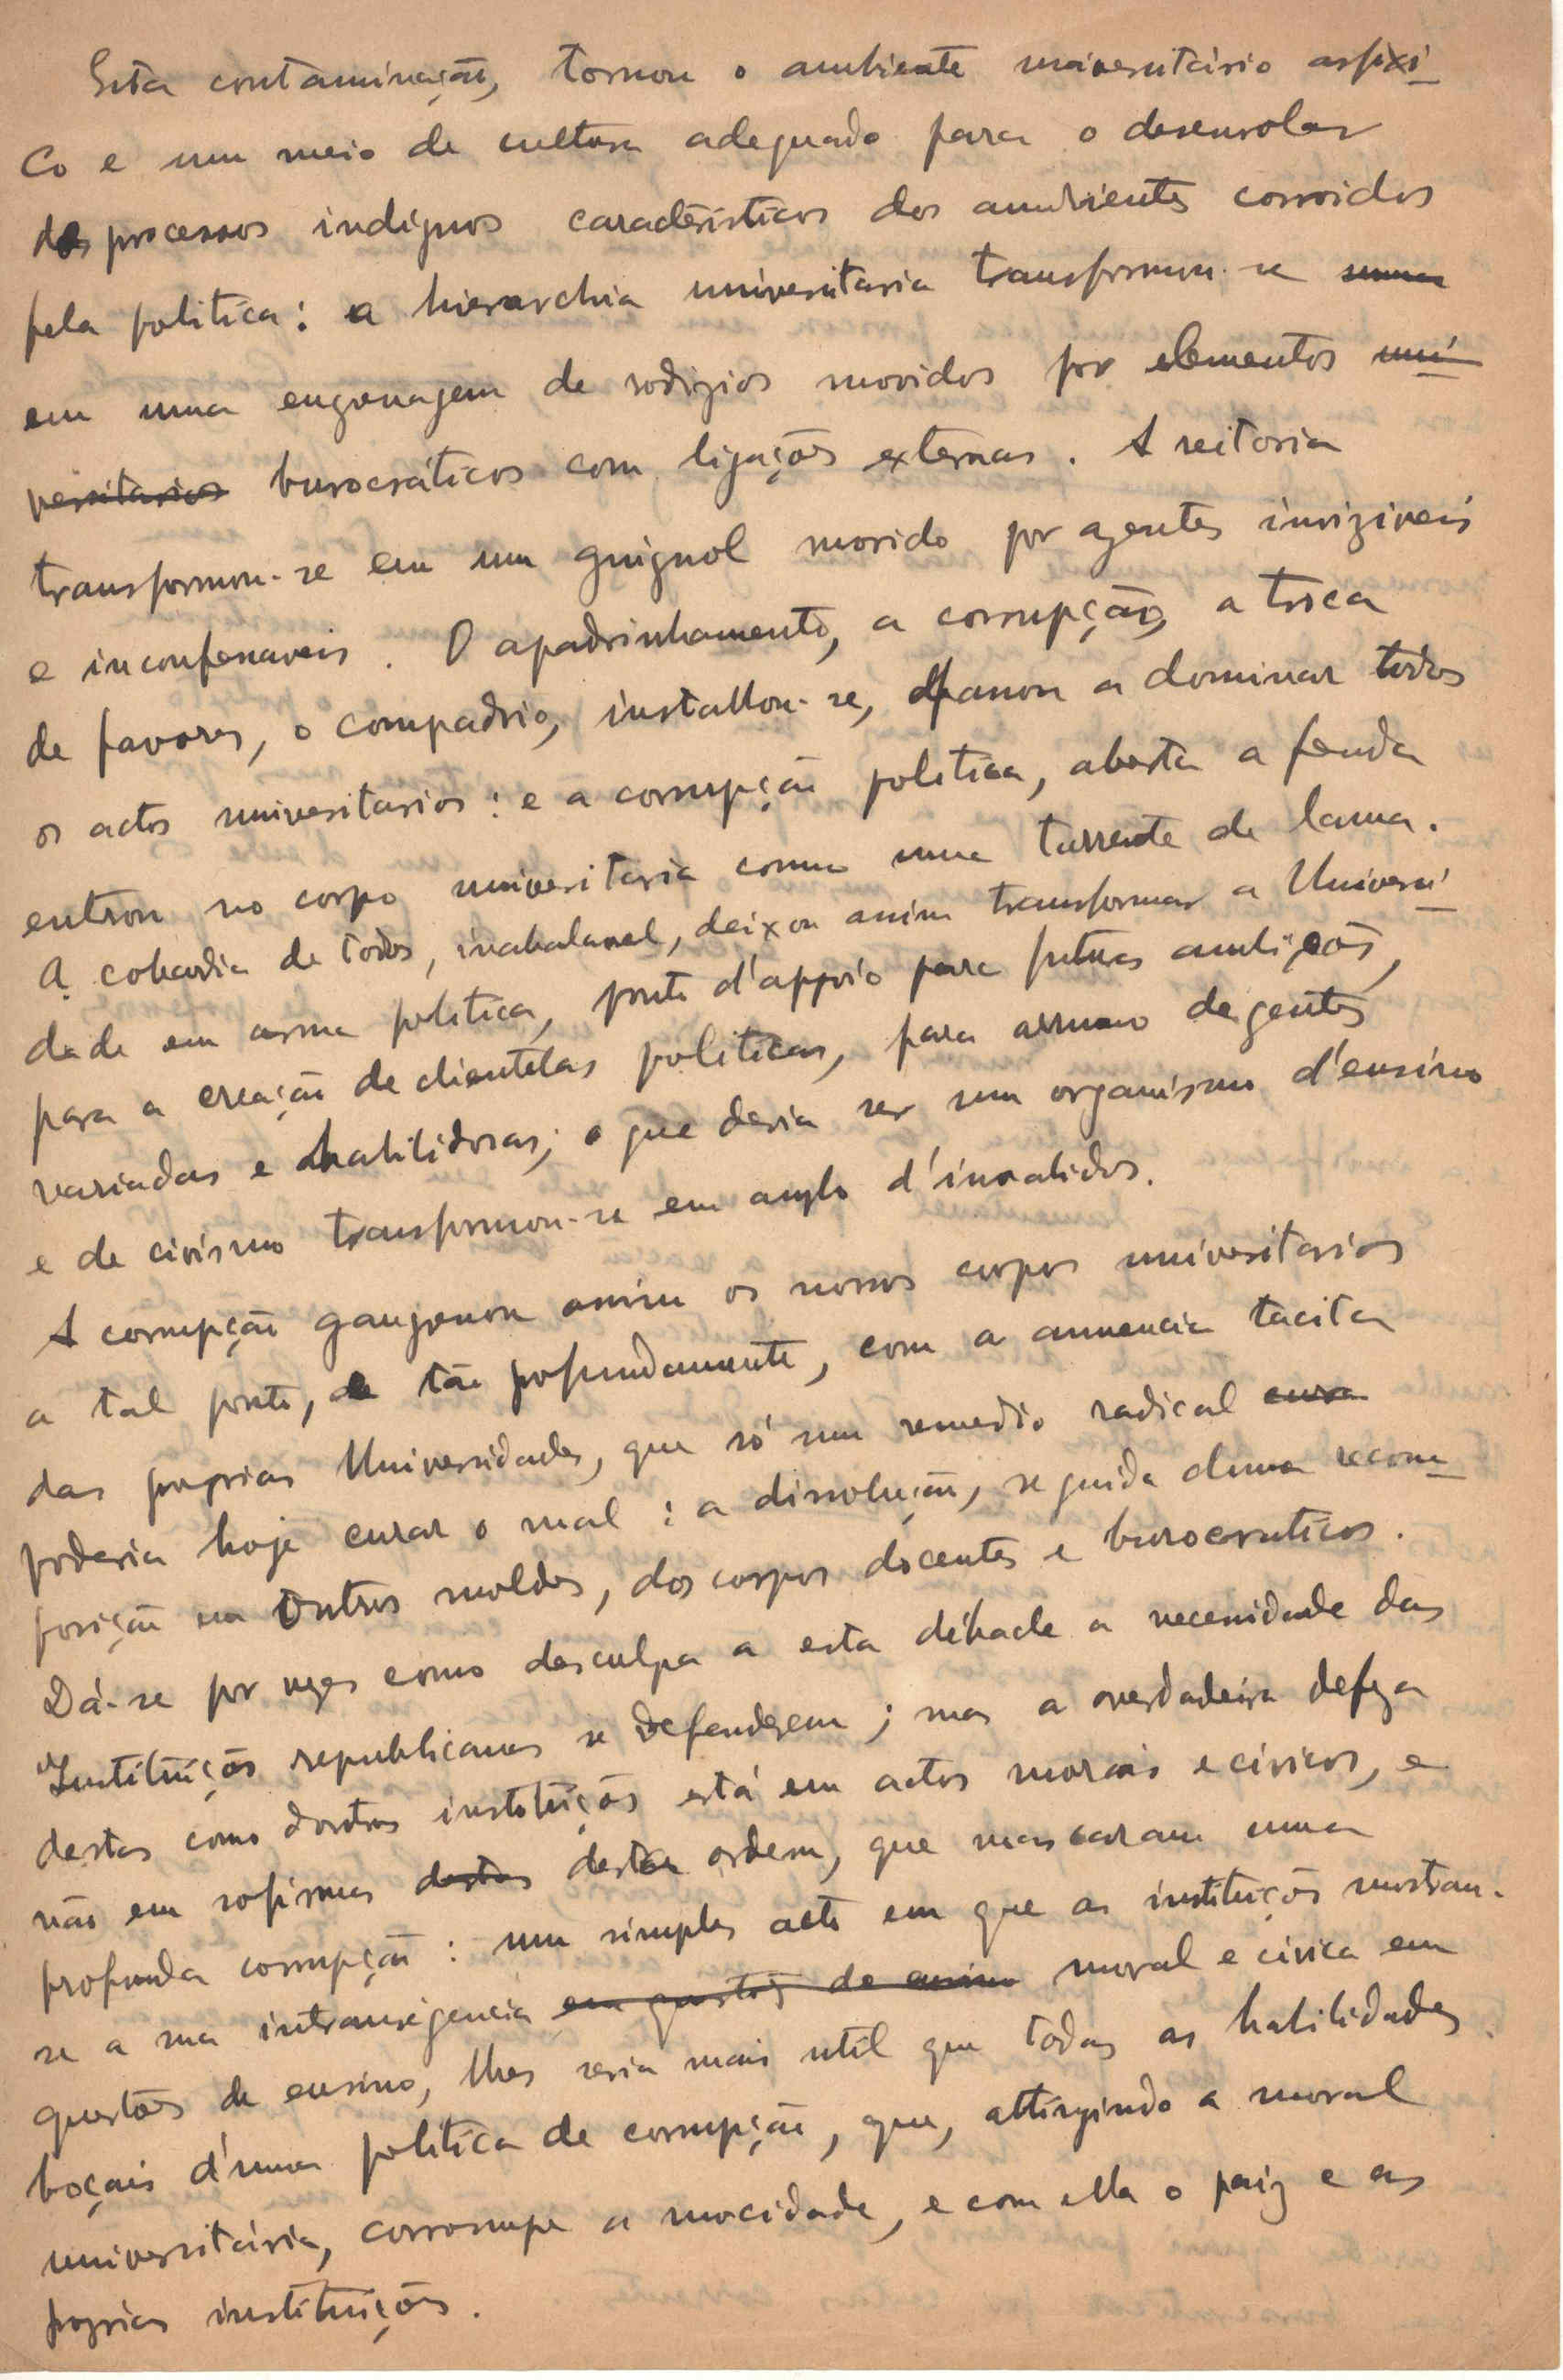 Esta contaminação, tornou o ambiente universitário asfixi-
co e um meio de cultura adequado para o desenrolar
dos processos indignos característicos dos ambientes corroidos
pela politica: a hierarchia universitaria transformou-se numa
em uma engrenagem de rodizios movidos por elementos uni-
versitarios burocráticos com ligações externas. A reitoria
transformou-se em um guignol movido por agentes inviziveis
e inconfessaveis. O apadrinhamento, a corrupção, a troca
de favores, o compadrio, installou-se, passou a dominar todos
os actos universitarios: e a corrupção politica, aberta a fenda
entrou no corpo universitaria como uma turrente de lama.
A cobardia de todos, inabalavel, deixou assim transformar a Universi-
dade em arma politica, ponto d'appoio para futuras ambições,
para a creação de clientelas politicas, para arrumo de gentes
variadas e habilidosas; o que devia ser um organismo d'ensino
e de civismo transformou-se em asylo d'invalidos.
A corrupção gangrenou assim os nossos corpos universitarios
a tal ponto, e tão profundamente, com a annuencia tacita
das proprias Universidades, que só um remedio radical cura
poderia hoje curar o mal: a dissolução, seguida duma recom-
posição em outros moldes, dos corpos docentes e burocraticos.
Dá-se por vezes como desculpa a esta débacle a necessidade das
Instituições republicanas se defenderem; mas a verdadeira defeza
destas como doutras instituições está em actos morais e civicos, e
não em sofismas destas desta ordem, que mascaram uma
profunda corrupção: um simples acto em que as instituições mostran-
se a sua intransigencia em questões de ensino moral e civica em
questões de ensino, lhes seria mais util que todas as habilidades
boçais d'uma politica de corrupção, que, attingindo a moral
universitária, corrompe a mocidade, e com ella o paiz e as
proprias instituições.